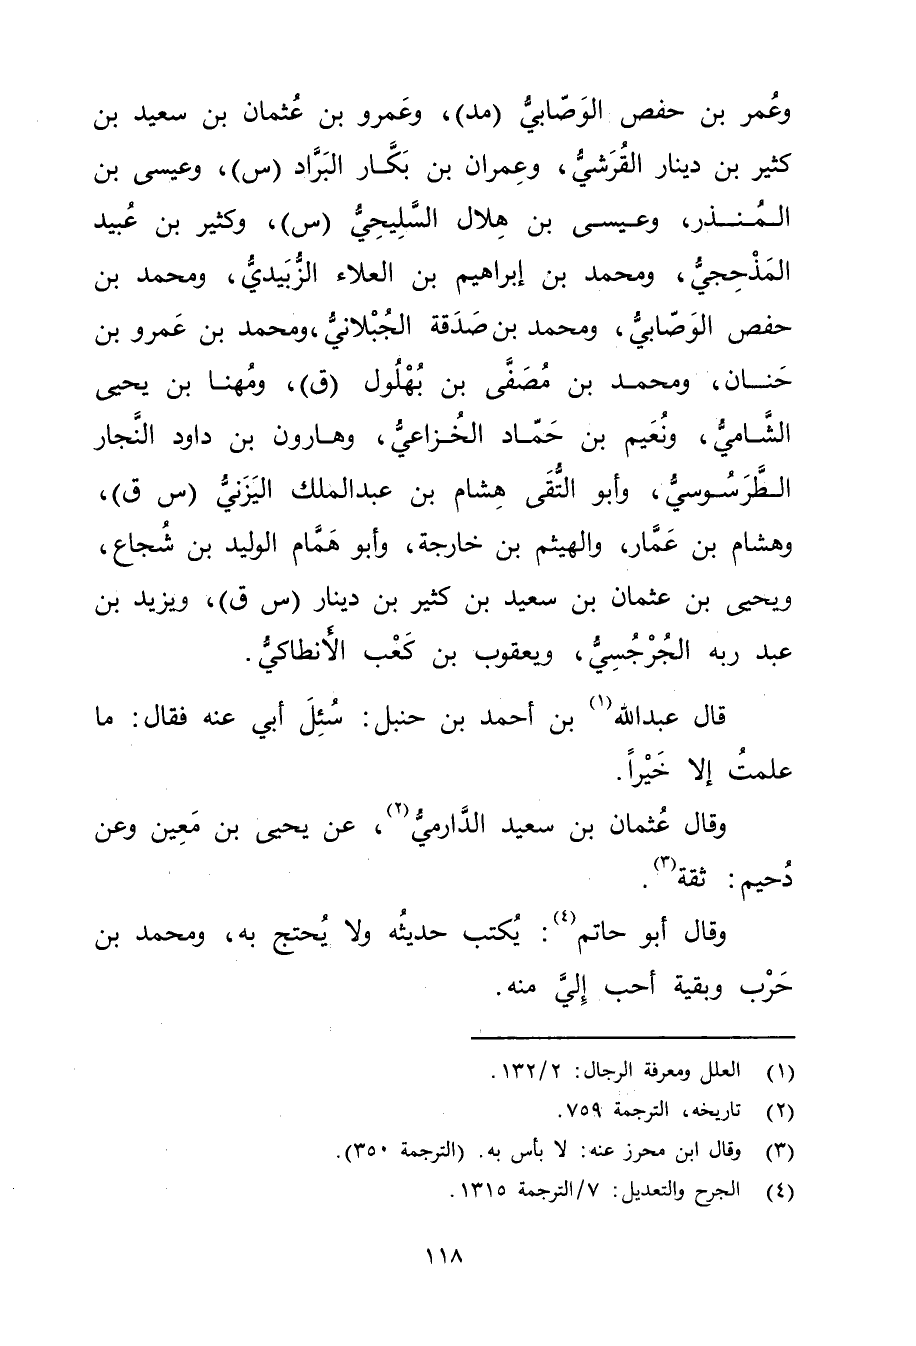 وعُمر بن حفص الوَصّابيُّ (مد)، وعَمرو بن عُثمان بن سعيد بن
كثير بن دينار القُرَشيُّ، وعِمران بن بَكَّار البَرَّاد (س)، وعيسى بن
المُنذر، وعيسى بن هِلال السَّلِيحِيُّ (س)، وكثير بن عُبيد
المَذْحِجيُّ، ومحمد بن إبراهيم بن العلاء الزُّبَيديُّ، ومحمد بن
حفص الوَصّابيُّ، ومحمد بن صَدَقة الجُبْلانيُّ،ومحمد بن عَمرو بن
حَنان، ومحمد بن مُصَفَّى بن بُهْلُول (ق)، ومُهنا بن يحيى
الشَّاميُّ، ونُعَيم بن حَمّاد الخُزاعيُّ، وهارون بن داود النَّجار
الطَّرَسُوسيُّ، وأبو التُّقَى هِشام بن عبدالملك اليَزَنيُّ (س ق)،
وهشام بن عَمَّار، والهيثم بن خارجة، وأبو هَمَّام الوليد بن شُجاع،
ويحيى بن عثمان بن سعيد بن كثير بن دينار (س ق)، ويزيد بن
عبد ربه الجُرْجُسِيُّ، ويعقوب بن كَعْب الأَنطاكيُّ.
قال عبدالله(١) بن أحمد بن حنبل: سُئِلَ أبي عنه فقال: ما
علمتُ إلا خَيْراً.
وقال عُثمان بن سعيد الدَّارميُّ(٢)، عن يحيى بن مَعِين وعن
دُحيم: ثقة(٣).
وقال أبو حاتم(٤): يُكتب حديثُه ولا يُحتج به، ومحمد بن
حَرْب وبقية أحب إِليَّ منه.
(١) العلل ومعرفة الرجال: ١٣٢/٢.
(٢) تاريخه، الترجمة ٧٥٩.
(٣) وقال ابن محرز عنه: لا بأس به. (الترجمة ٣٥٠).
(٤) الجرح والتعديل: ٧/الترجمة ١٣١٥.
١١٨